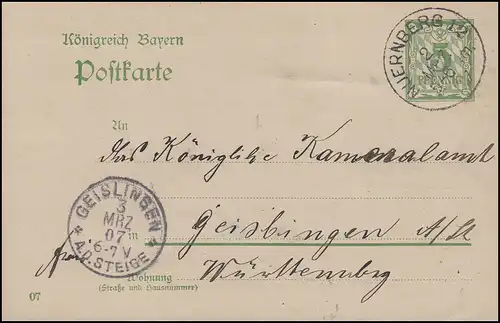 Königreich Bayern
Postkarte
NUERNBERG 12
5
An
Das Königliche Kameralamt
GEISLINGEN
3
MRZ
07
6-7 V
A.D. STEIGE
in
Geislingen A/St
Württemberg
Wohnung
(Straße und Hausnummer)
07